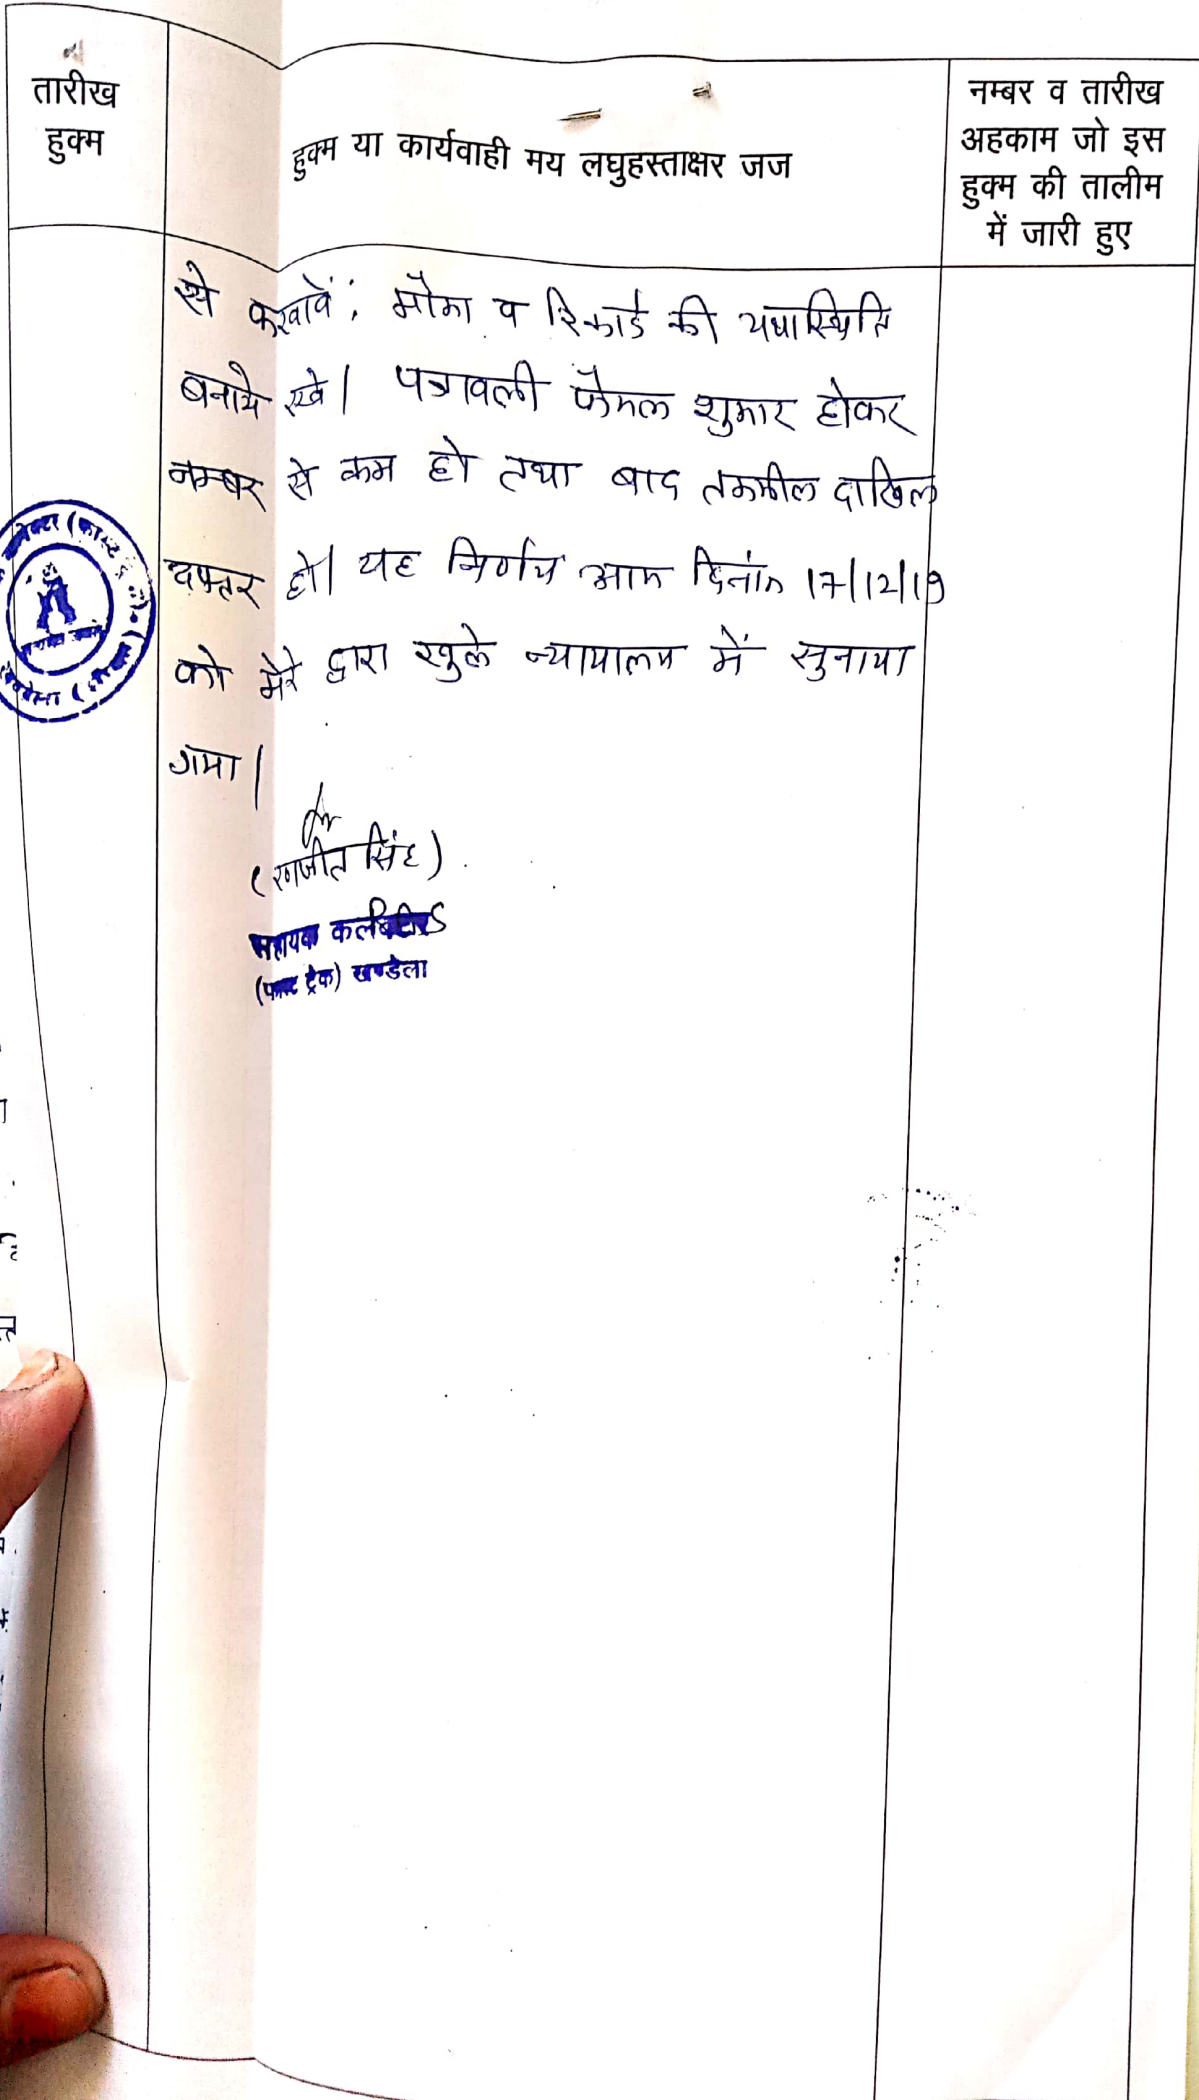 तारीख
हुक्म
हुक्म या कार्यवाही मय लघुहस्ताक्षर जज
नम्बर व तारीख
अहकाम जो इस
हुक्म की तालीम
में जारी हुए
से करवावें, मौका व रिकार्ड की यथास्थिति
बनाये रखे। पत्रावली फैसल शुमार होकर
नम्बर से कम हो तथा बाद तकमील दाखिल
दफ्तर हो। यह निर्णय आज दिनांक 17/12/19
को मेरे द्वारा खुले न्यायालय में सुनाया
गया।
(रणजीत सिंह)
सहायक कलेक्टर
(फास्ट ट्रेक) खण्डेला